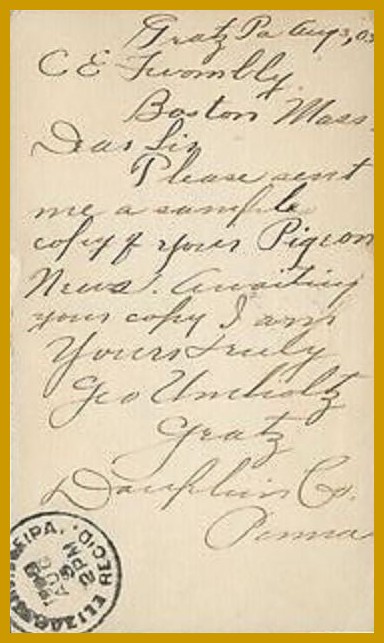 Gratz Pa Aug 3, 03
C E Twombly.
Boston Mass.
Dear Sir
Please sent
me a sample
copy of your Pigeon
News. Awaiting
your copy I am
Yours truly
Geo Umholtz
Gratz
Dauphin Co.
Penna
PA. REC'D.
2 PM
AUG